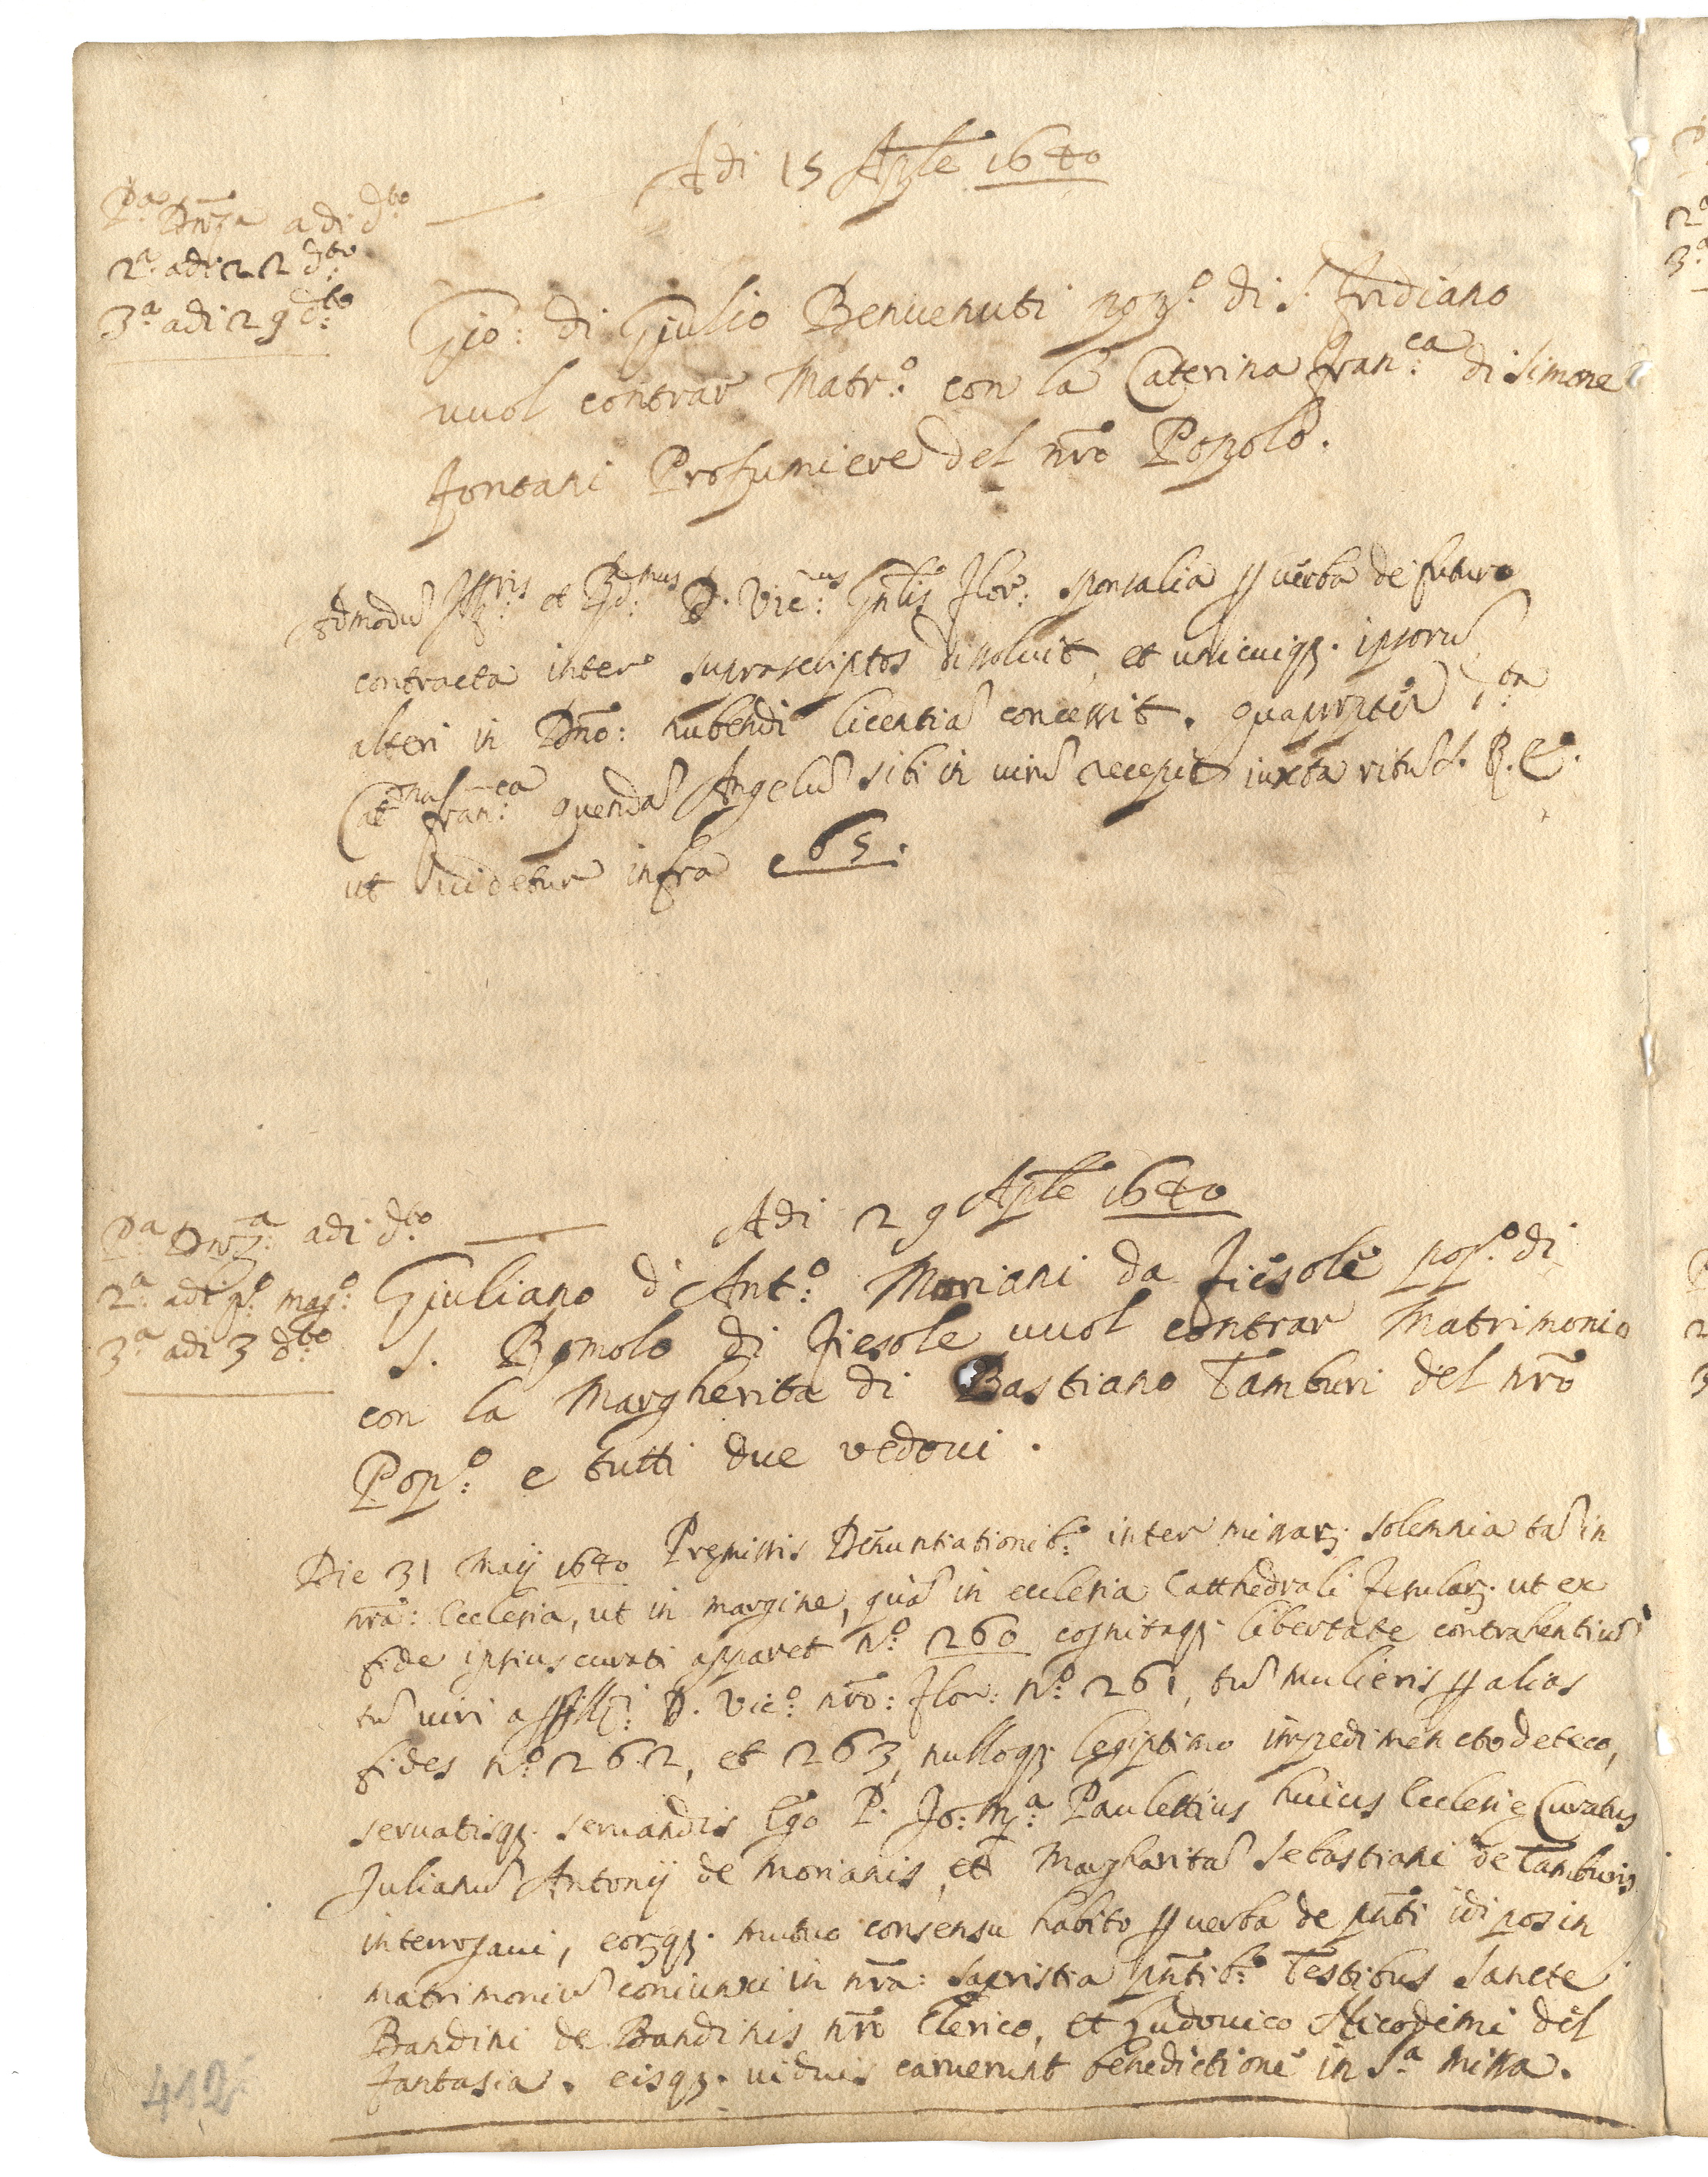 Adi 15 Aple 1640
Pa: Dnza adi dto:
2a: adi 22 dto:
3a: adi 29 dto:
Gio: di Giulio Benuenuti pop.o di S. Fridiano
uuol contrar Matr:o con la Caterina Fran:ca di Simone
Fontani Profumiere del nro Popolo.
Admodu Illris: et Rd:mus D. Vic:us Gnlis Flor: sponsalia p uerba de futuro
contracta inter suprascriptos dissoluit, et unicuiqz. ipsoru
alteri in Dno: nubendi licentia concessit. quapropter d:ta
Catna Fran:ca quenda Angelu sibi in uiru recepit iuxta ritu S. R. E.
ut uidetur infra c 65.
Adi 29 Aple 1640
Pa Dnz:a adi d:to
2a: adi p:o mag:o
3a: adi 3 d:to
Giuliano d'Ant:o Moriani da Fiesole pop.o di
S. Romolo di Fiesole uuol contrar Matrimonio
con la Margherita di Bastiano Tamburi del nro
Pop:o e tutti due vedoui.
Die 31 Maij 1640 Premissis Denuntiationib: inter missarz. solemnia ta in
nra: Ecclesia, ut in margine, qua in ecclesia Catthedrali Fesularz. ut ex
fide ipsius curati apparet n:o 260 cognitaqz. libertate contrahentiu
tu uiri a D. Vic:o nro: Flor: n:o 261, tu mulieris p alias
fides n:o 262, et 263, nulloqz. legiptimo impedimencto detecto,
seruatisqz. seruandis Ego P. Jo: Ma: Paulettius huius Ecclesie Curatus
Julianu Antonij de Morianis, et Margharita Sebastiani de Tamburis
interrogaui, eorzqz. mutuo consensu habito p uerba de pnti idipos in
matrimoniu coniunxi in nra: sacristia pntib: Testibus Sancte
Bandini de Bandinis nro Clerico, et Ludouico Nicodemi del
Fantasia. eisqz. uiduis caruerunt benedictione in S.a missa.
412